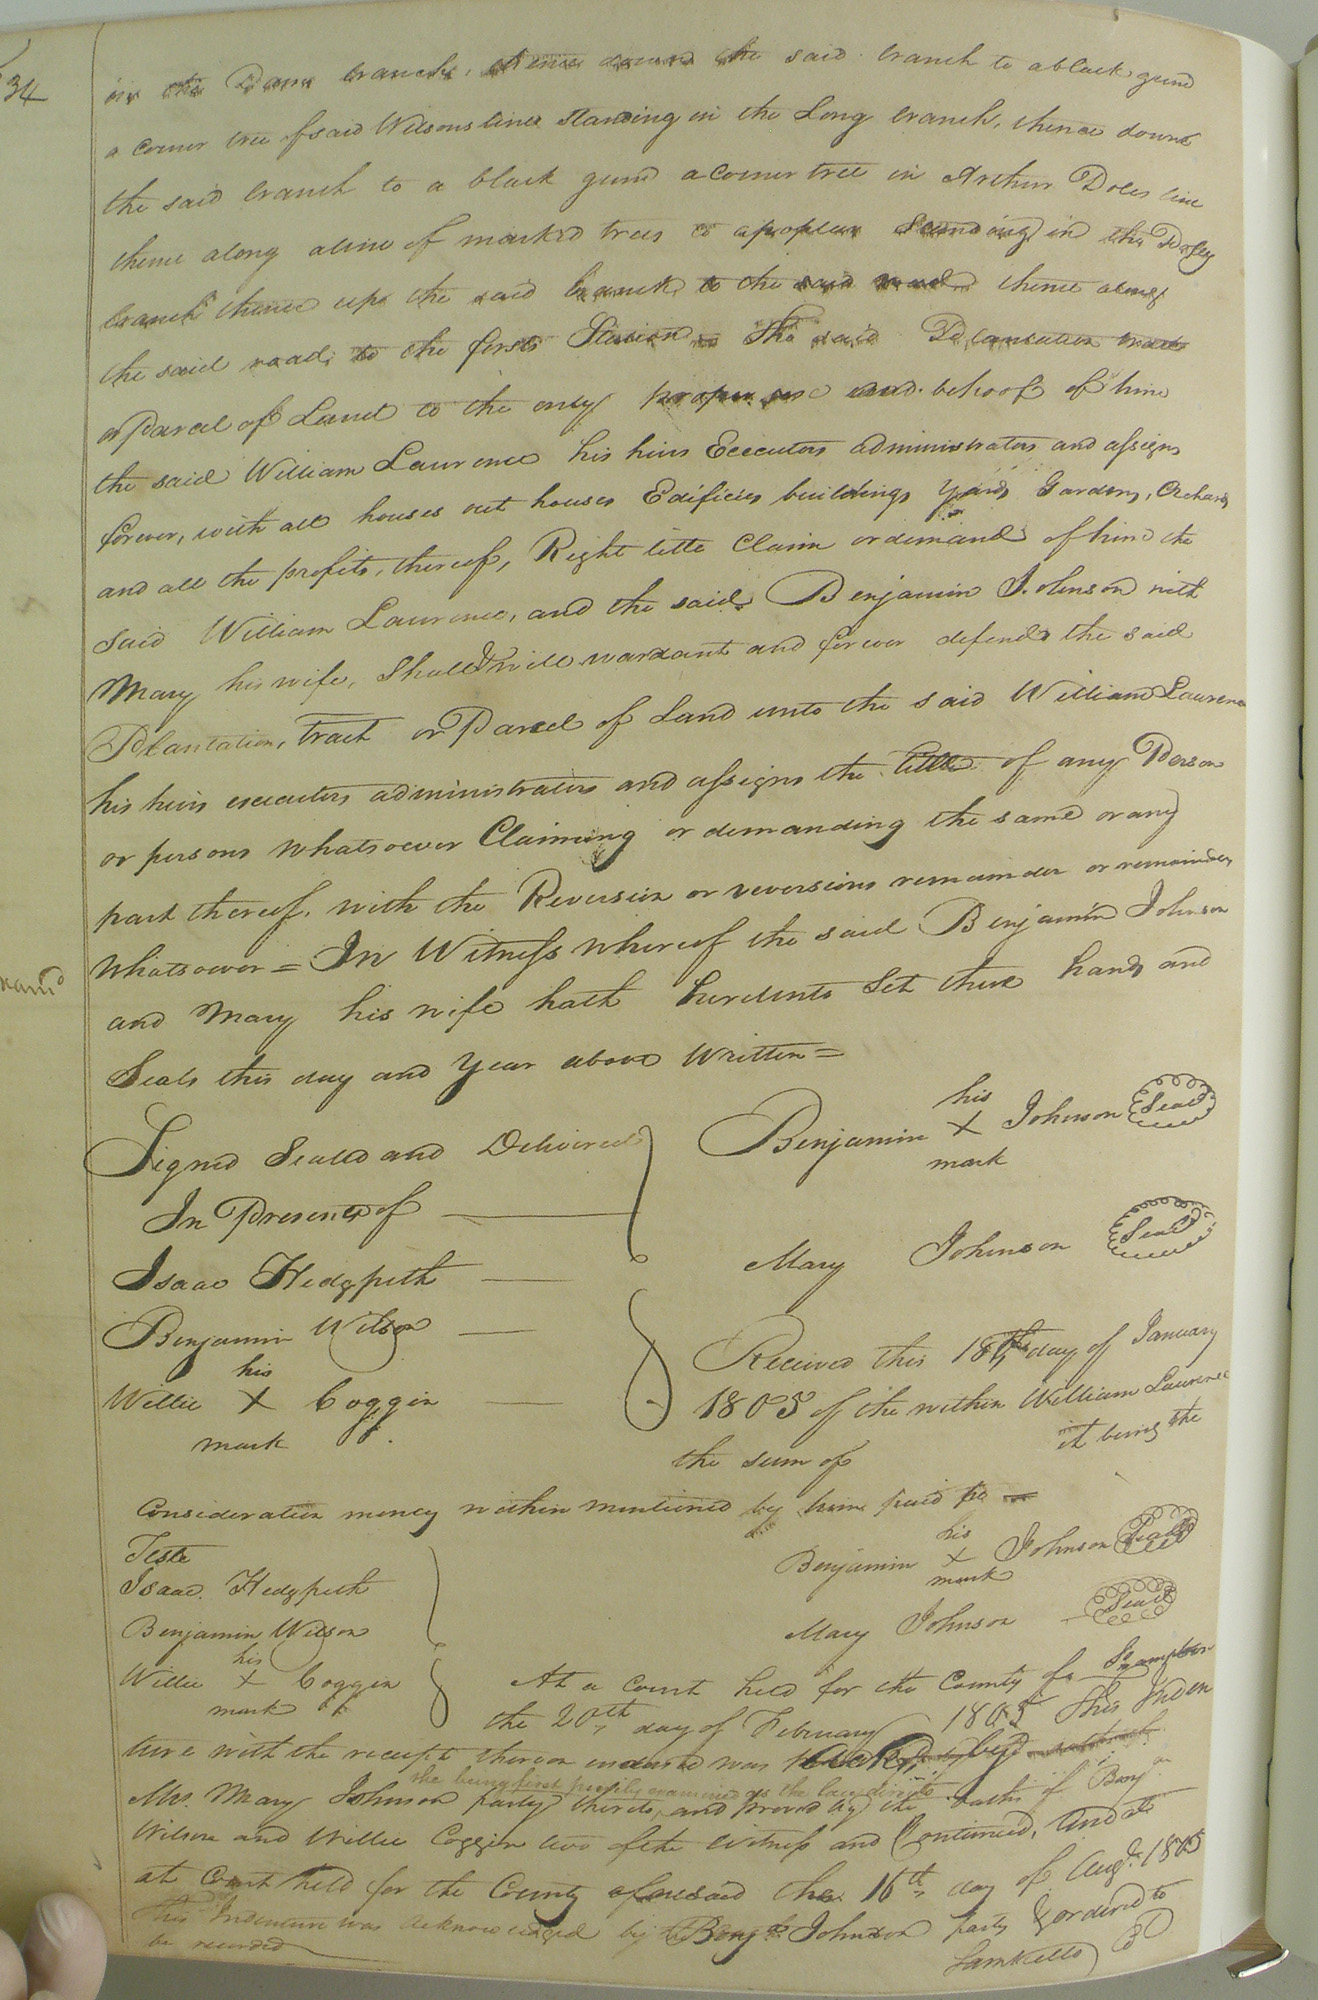 34
in the Dam branch, thence down the said branch to a black gum
a corner tree of said Wilsons line standing in the Long branch, thence down
the said branch to a black gum a corner tree in Arthur Doles line
thence along a line of marked trees to a poplar standing in the
branch thence up the said branch to the said road thence along
the said road to the first Station the said Plantation tract
or Parcel of Land to the only proper use and behoof of him
the said William Laurence his heirs Executors administrators and assigns
forever, with all houses out houses Edificies buildings Yards Gardens, Orchards
and all the profits, thereof, Right title Claim or demand of him the
Said William Laurence, and the said Benjamin Johnson with
Mary his wife, Shall & will warrant and forever defend the said
Plantation, tract or Parcel of Land unto the said William Laurence
his heirs executors administrators and assigns the title of any Person
or persons whatsoever Claiming or demanding the same or any
part thereof, with the Reversion or reversions remainder or remainders
whatsoever = In Witness whereof the said Benjamin Johnson
and Mary his wife hath hereunto Set their hands and
Seals this day and Year above Written =
his
Benjamin X Johnson Seal
mark
Signed Sealed and Delivered
In Presents of
Mary Johnson Seal
Isaac Hedgpeth
Benjamin Wilson
his
Willie X Coggin
mark
Received this 18th day of January
1805 of the within William Laurence
the sum of it being the
Consideration money within mentioned by him paid
his
Benjamin X Johnson Seal
mark
Teste
Isaac Hedgpeth
Benjamin Wilson
his
Willie X Coggin
mark
Mary Johnson Seal
At a Court held for the County of
the 20th day of February 1805 This Inden
ture with the receipt thereon endorsed was by
she being first privily examined as the law directs
Mrs. Mary Johnson party thereto, and proved by the oaths of Benj
Wilson and Willie Coggin two of the Witness and Continued, And at
at Court held for the County aforesaid the 16th day of Augt. 1805
This Indenture was acknowledged by Benj. Johnson party & ordered to
be recorded